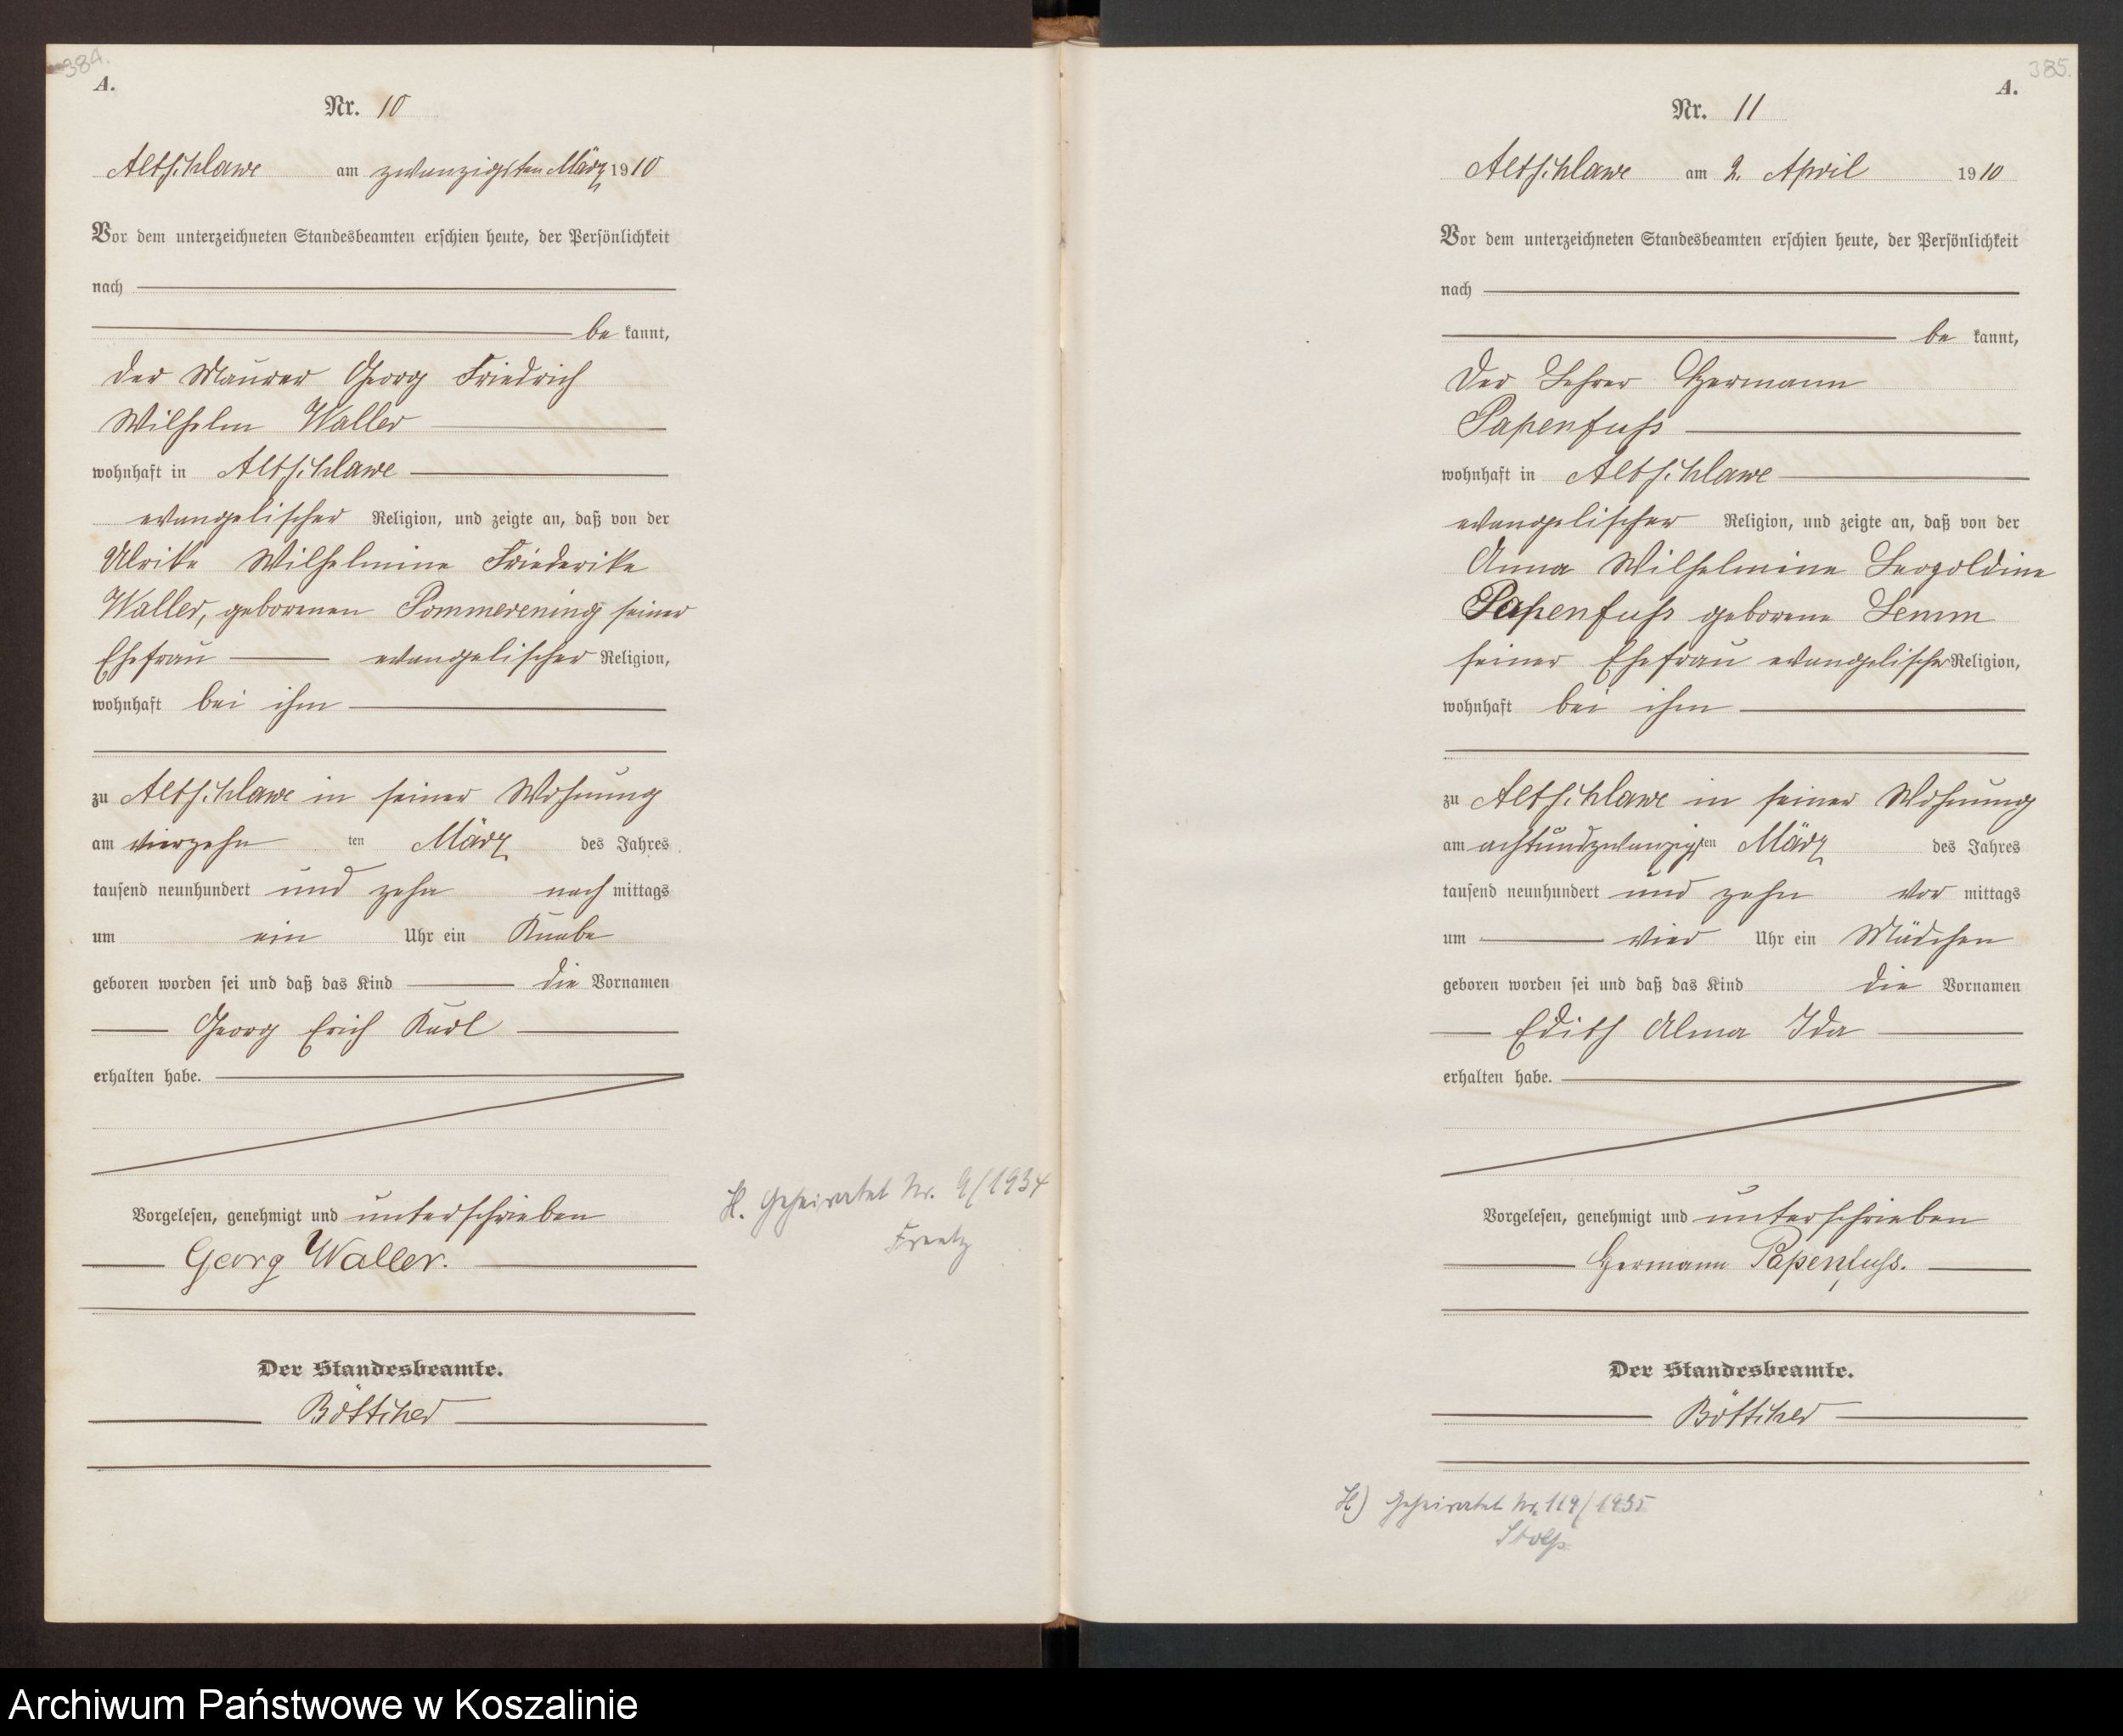 384.
A.
Nr. 10
Altschlawe am zwanzigsten März 1910
Vor dem unterzeichneten Standesbeamten erschien heute, der Persönlichkeit
nach
be kannt,
der Maurer Georg Friedrich
Wilhelm Waller
wohnhaft in Altschlawe
evangelischer Religion, und zeigte an, daß von der
Ulrike Wilhelmine Friederike
Waller, geborenen Pommerening seiner
Ehefrau evangelischer Religion,
wohnhaft bei ihm
zu Altschlawe in seiner Wohnung
am vierzehn ten März des Jahres
tausend neunhundert und zehn nach mittags
um ein Uhr ein Knabe
geboren worden sei und daß das Kind die Vornamen
Georg Erich Karl
erhalten habe.
Vorgelesen, genehmigt und unterschrieben
Georg Waller.
Der Standesbeamte.
Böttcher
H. Geheiratet Nr. 9/1934
385.
A.
Nr. 11
Altschlawe am 2. April 1910
Vor dem unterzeichneten Standesbeamten erschien heute, der Persönlichkeit
nach
be kannt,
Der Lehrer Hermann
Papenfuß
wohnhaft in Altschlawe
evangelischer Religion, und zeigte an, daß von der
Anna Wilhelmine Leopoldine
Papenfuß geborene Lemm
seiner Ehefrau evangelischer Religion,
wohnhaft bei ihm
zu Altschlawe in seiner Wohnung
am achtundzwanzigsten März des Jahres
tausend neunhundert und zehn vor mittags
um vier Uhr ein Mädchen
geboren worden sei und daß das Kind die Vornamen
Edith Alma Ida
erhalten habe.
Vorgelesen, genehmigt und unterschrieben
Hermann Papenfuß.
Der Standesbeamte.
Böttcher
H) Geheiratet Nr. 119/1935
Stolp
Archiwum Państwowe w Koszalinie